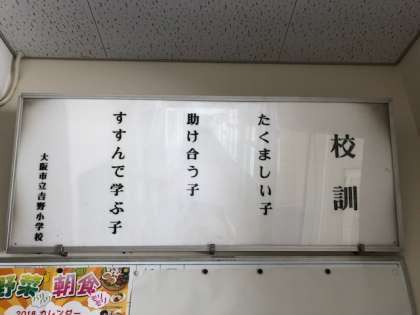 校訓
たくましい子
助け合う子
すすんで学ぶ子
大阪市立吉野小学校
野菜
朝食
2016 カレンダー